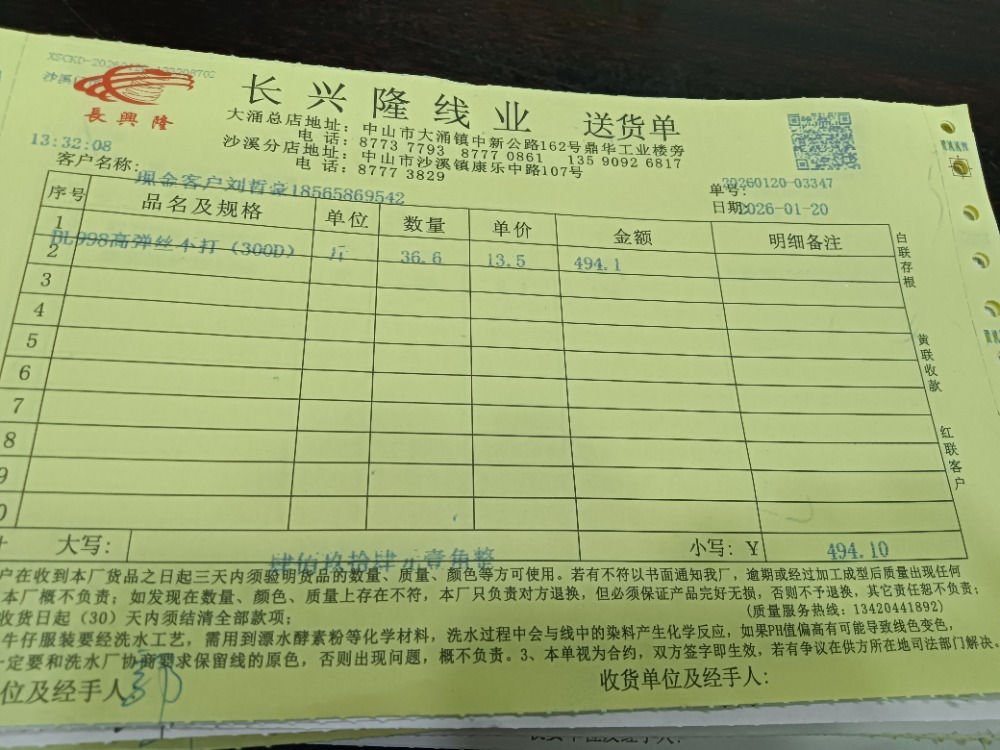 長興隆
长兴隆线业 送货单
大涌总店地址：中山市大涌镇中新公路162号鼎华工业楼旁
电 话：8773 7793 8777 0861 135 9092 6817
沙溪分店地址：中山市沙溪镇康乐中路107号
电 话：8777 3829
13:32:08
客户名称：现金客户刘哲豪18565869542
单号：20260120-03347
日期：2026-01-20
序号 品名及规格 单位 数量 单价 金额 明细备注
1 BL998高弹丝不打（300D） 斤 36.6 13.5 494.1
2
3
4
5
6
7
8
9
0
白联存根
黄联收款
红联客户
大写： 肆佰玖拾肆元壹角整 小写：Y 494.10
户在收到本厂货品之日起三天内须验明货品的数量、质量、颜色等方可使用。若有不符以书面通知我厂，逾期或经过加工成型后质量出现任何
本厂概不负责；如发现在数量、颜色、质量上存在不符，本厂只负责对方退换，但必须保证产品完好无损，否则不予退换，其它责任恕不负责；
收货日起（30）天内须结清全部款项； (质量服务热线：13420441892)
牛仔服装要经洗水工艺，需用到漂水酵素粉等化学材料，洗水过程中会与线中的染料产生化学反应，如果PH值偏高有可能导致线色变色，
一定要和洗水厂协商要求保留线的原色，否则出现问题，概不负责。3、本单视为合约，双方签字即生效，若有争议在供方所在地司法部门解决。
位及经手人： 收货单位及经手人：